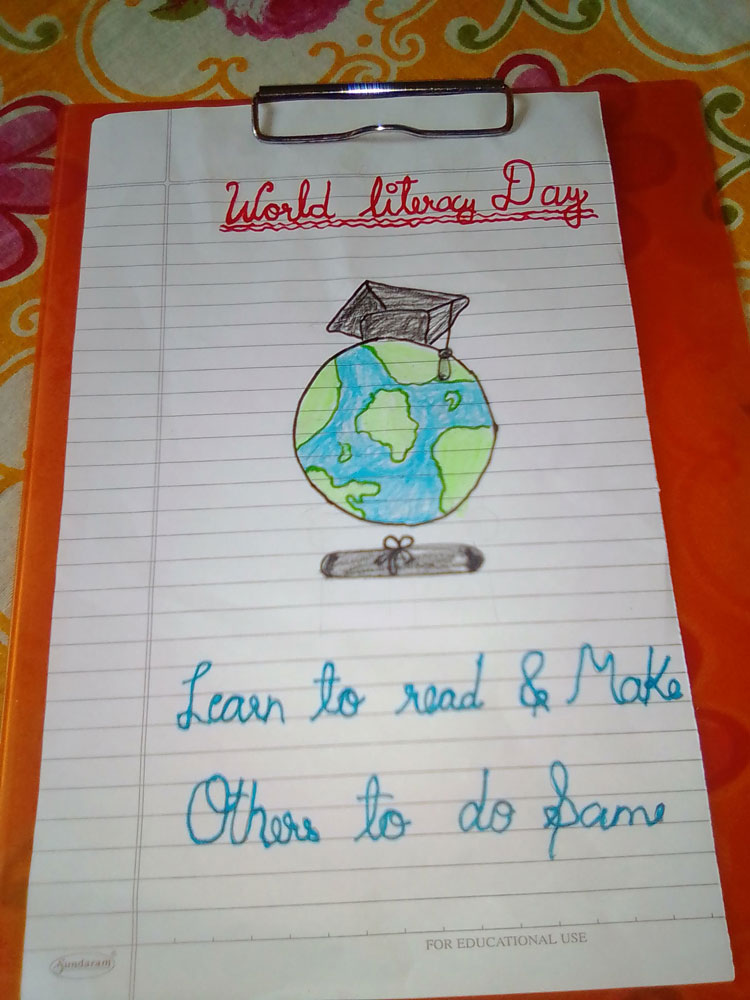 World literacy Day
Learn to read & Make
Others to do Same
FOR EDUCATIONAL USE
Sundaram